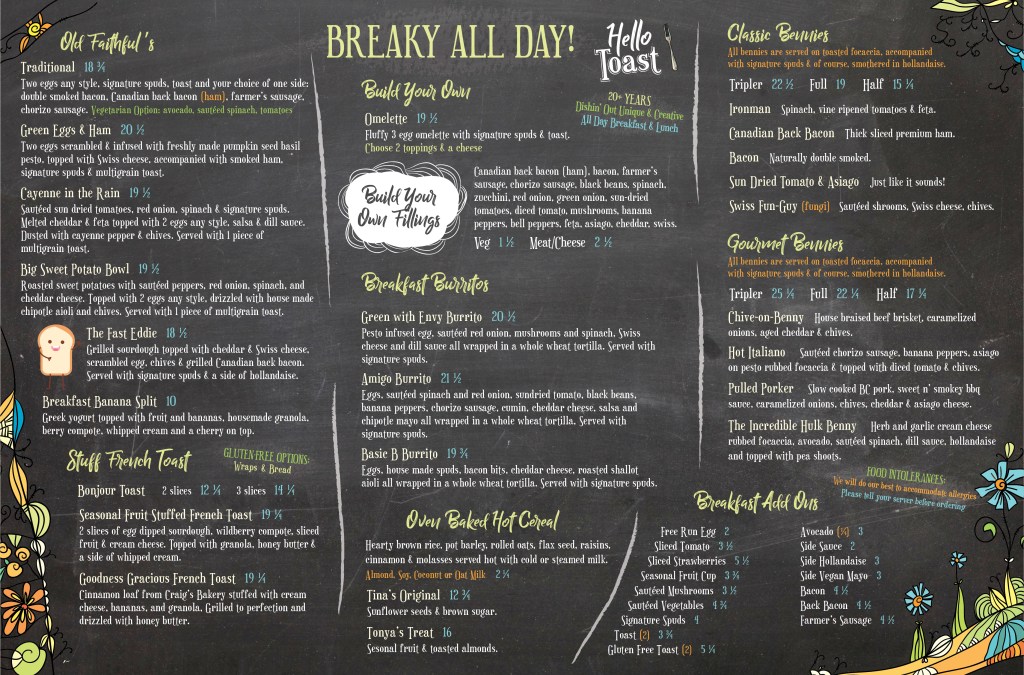 Old Faithful's
Traditional 18 ¾
Two eggs any style, signature spuds, toast and your choice of one side:
double smoked bacon, Canadian back bacon (ham), farmer's sausage,
chorizo sausage. Vegetarian Option: avocado, sautéed spinach, tomatoes
Green Eggs & Ham 20 ½
Two eggs scrambled & infused with freshly made pumpkin seed basil
pesto, topped with Swiss cheese, accompanied with smoked ham,
signature spuds & multigrain toast.
Cayenne in the Rain 19 ½
Sautéed sun dried tomatoes, red onion, spinach & signature spuds.
Melted cheddar & feta topped with 2 eggs any style, salsa & dill sauce.
Dusted with cayenne pepper & chives. Served with 1 piece of
multigrain toast.
Big Sweet Potato Bowl 19 ½
Roasted sweet potatoes with sautéed peppers, red onion, spinach, and
cheddar cheese. Topped with 2 eggs any style, drizzled with house made
chipotle aioli and chives. Served with 1 piece of multigrain toast.
The Fast Eddie 18 ½
Grilled sourdough topped with cheddar & Swiss cheese,
scrambled egg, chives & grilled Canadian back bacon.
Served with signature spuds & a side of hollandaise.
Breakfast Banana Split 10
Greek yogurt topped with fruit and bananas, housemade granola,
berry compote, whipped cream and a cherry on top.
Stuff French Toast
GLUTEN FREE OPTIONS:
Wraps & Bread
Bonjour Toast 2 slices 12 ¼ 3 slices 14 ¼
Seasonal Fruit Stuffed French Toast 19 ¼
2 slices of egg dipped sourdough, wildberry compote, sliced
fruit & cream cheese. Topped with granola, honey butter &
a side of whipped cream.
Goodness Gracious French Toast 19 ¼
Cinnamon loaf from Craig's Bakery stuffed with cream
cheese, bananas, and granola. Grilled to perfection and
drizzled with honey butter.
BREAKY ALL DAY!
Hello
Toast
20+ YEARS
Dishin' Out Unique & Creative
All Day Breakfast & Lunch
Build Your Own
Omelette 19 ½
Fluffy 3 egg omelette with signature spuds & toast.
Choose 2 toppings & a cheese
Build Your
Own Fillings
Canadian back bacon (ham), bacon, farmer's
sausage, chorizo sausage, black beans, spinach,
zucchini, red onion, green onion, sun-dried
tomatoes, diced tomato, mushrooms, banana
peppers, bell peppers, feta, asiago, cheddar, swiss.
Veg 1 ½ Meat/Cheese 2 ½
Breakfast Burritos
Green with Envy Burrito 20 ½
Pesto infused egg, sautéed red onion, mushrooms and spinach, Swiss
cheese and dill sauce all wrapped in a whole wheat tortilla. Served with
signature spuds.
Amigo Burrito 21 ½
Eggs, sautéed spinach and red onion, sundried tomato, black beans,
banana peppers, chorizo sausage, cumin, cheddar cheese, salsa and
chipotle mayo all wrapped in a whole wheat tortilla. Served with
signature spuds.
Basic B Burrito 19 ¾
Eggs, house made spuds, bacon bits, cheddar cheese, roasted shallot
aioli all wrapped in a whole wheat tortilla. Served with signature spuds.
Oven Baked Hot Cereal
Hearty brown rice, pot barley, rolled oats, flax seed, raisins,
cinnamon & molasses served hot with cold or steamed milk.
Almond, Soy, Coconut or Oat Milk 2 ¼
Tina's Original 12 ¾
Sunflower seeds & brown sugar.
Tonya's Treat 16
Sesonal fruit & toasted almonds.
Classic Bennies
All bennies are served on toasted focaccia, accompanied
with signature spuds & of course, smothered in hollandaise.
Tripler 22 ½ Full 19 Half 15 ¼
Ironman Spinach, vine ripened tomatoes & feta.
Canadian Back Bacon Thick sliced premium ham.
Bacon Naturally double smoked.
Sun Dried Tomato & Asiago Just like it sounds!
Swiss Fun-Guy (fungi) Sautéed shrooms, Swiss cheese, chives.
Gourmet Bennies
All bennies are served on toasted focaccia, accompanied
with signature spuds & of course, smothered in hollandaise.
Tripler 25 ¼ Full 22 ¼ Half 17 ¼
Chive-on-Benny House braised beef brisket, caramelized
onions, aged cheddar & chives.
Hot Italiano Sautéed chorizo sausage, banana peppers, asiago
on pesto rubbed focaccia & topped with diced tomato & chives.
Pulled Porker Slow cooked BC pork, sweet n' smokey bbq
sauce, caramelized onions, chives, cheddar & asiago cheese.
The Incredible Hulk Benny Herb and garlic cream cheese
rubbed focaccia, avocado, sautéed spinach, dill sauce, hollandaise
and topped with pea shoots.
FOOD INTOLERANCES:
We will do our best to accommodate allergies
Please tell your server before ordering
Breakfast Add Ons
Free Run Egg 2
Sliced Tomato 3 ½
Sliced Strawberries 5 ½
Seasonal Fruit Cup 3 ¾
Sautéed Mushrooms 3 ½
Sautéed Vegetables 4 ¾
Signature Spuds 4
Toast (2) 3 ¾
Gluten Free Toast (2) 5 ¼
Avocado (¼) 3
Side Sauce 2
Side Hollandaise 3
Side Vegan Mayo 3
Bacon 4 ½
Back Bacon 4 ½
Farmer's Sausage 4 ½